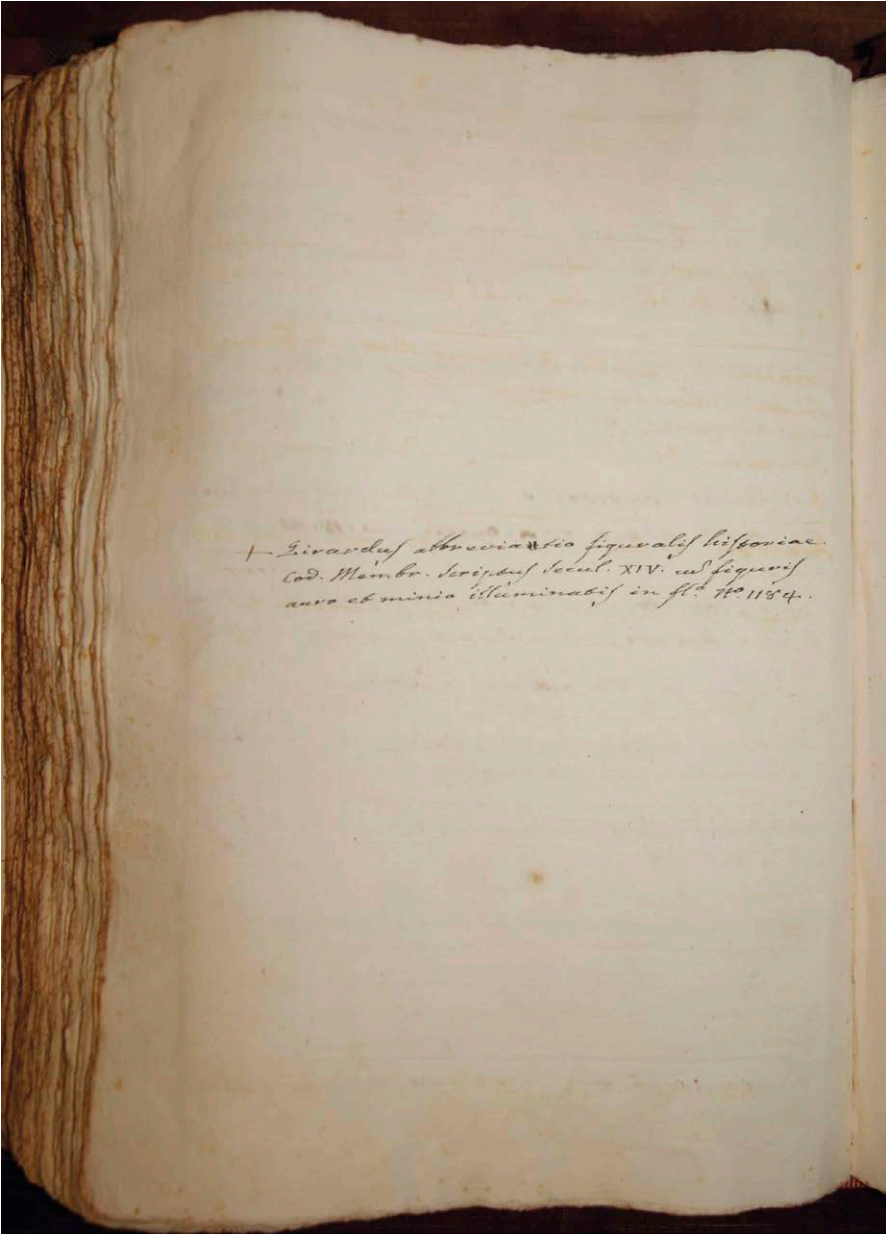 + Girardus abbreviatio figuralis historiae.
Cod. Membr. scriptus secul. XIV. cū figuris
auro et minio illuminatis in fl.º Nº. 1184.